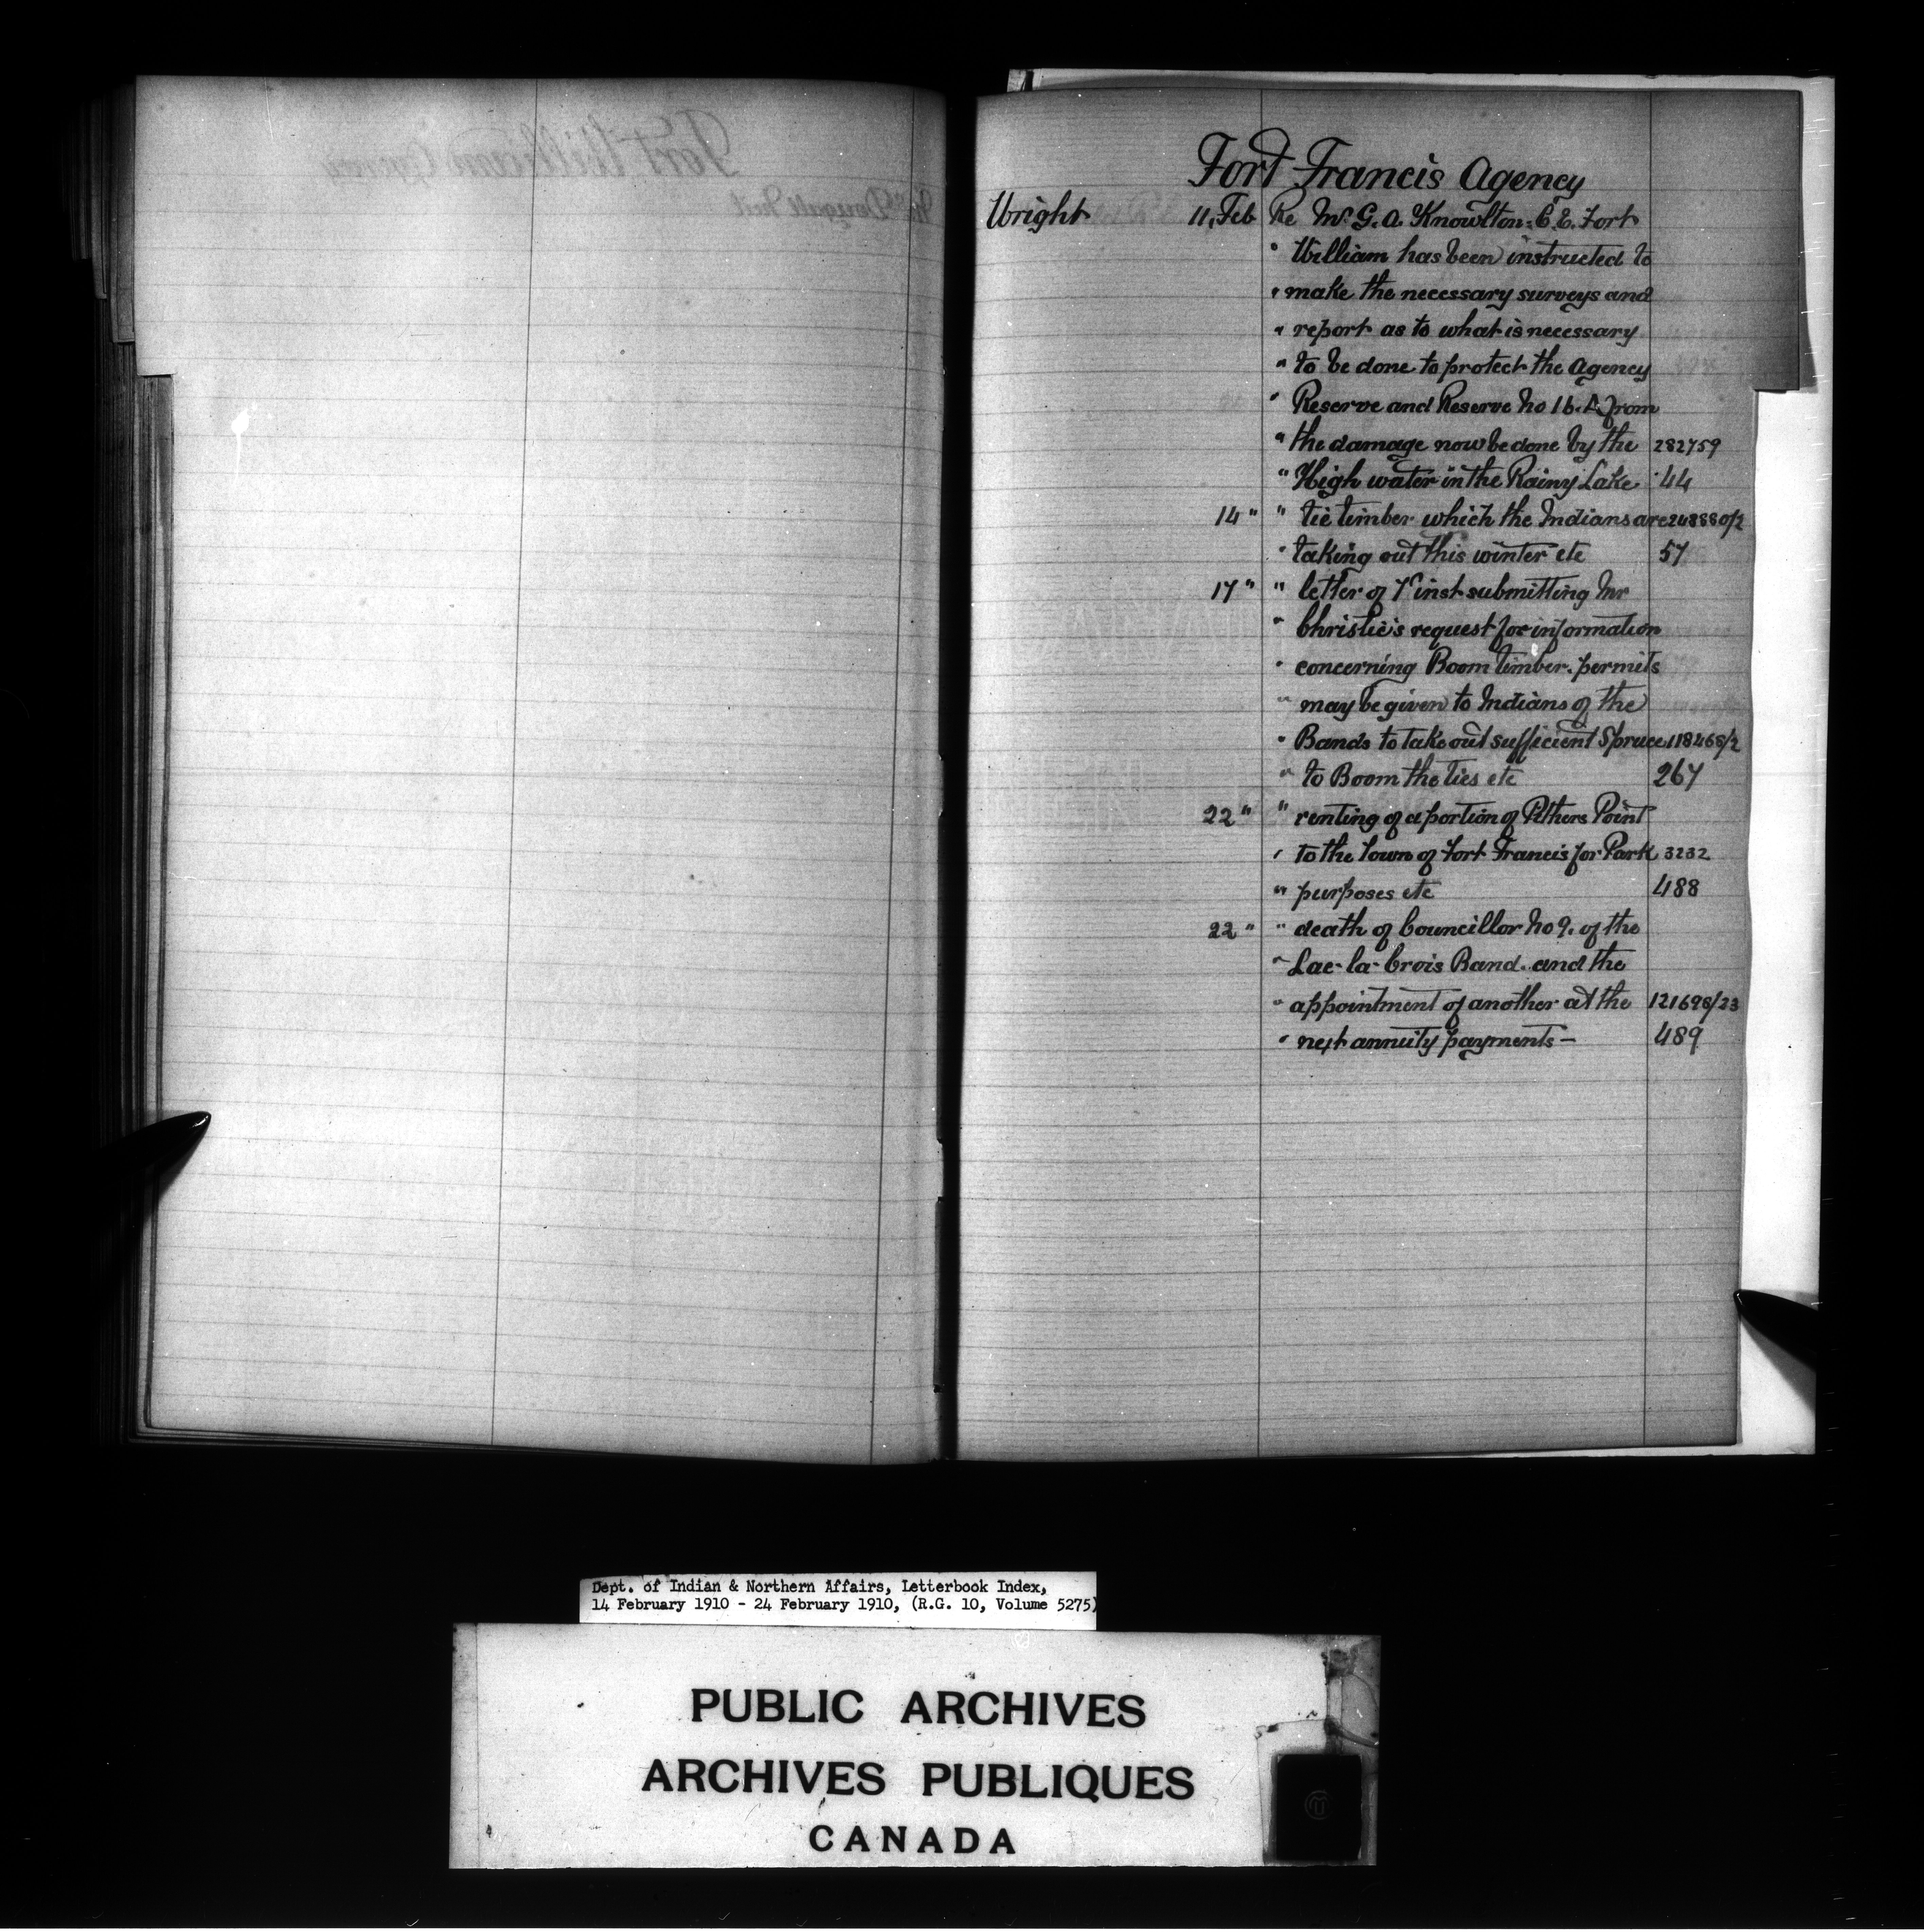 Fort Francis Agency
Wright 11, Feb Re Mr G. A. Knowlton: C. E. Fort
" William has been instructed to
" make the necessary surveys and
" report as to what is necessary
" to be done to protect the Agency
" Reserve and Reserve No 16. A from
" the damage now be done by the 282759
" High water in the Rainy Lake 44
14 " " tie timber which the Indians are 248880/2
" taking out this winter etc 57
17 " " letter of 7th inst submitting Mr
" Christie's request for information
" concerning Boom timber. permits
" may be given to Indians of the
" Bands to take out sufficient Spruce 118468/2
" to Boom the ties etc 267
22 " " renting of a portion of Pithers Point
" to the Town of Fort Francis for Park 3232
" purposes etc 488
22 " " death of Councillor No 9. of the
" Lac-la-Crois Band. and the
" appointment of another at the 121698/23
" next annuity payments — 489
Dept. of Indian & Northern Affairs, Letterbook Index,
14 February 1910 - 24 February 1910, (R.G. 10, Volume 5275)
PUBLIC ARCHIVES
ARCHIVES PUBLIQUES
CANADA